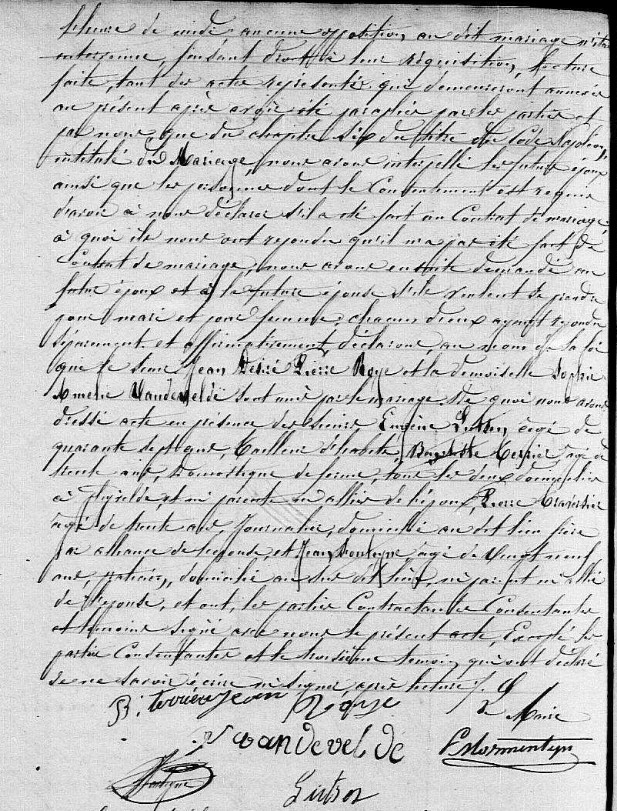 l'heure de midi aucune opposition au dit mariage n'étant
intervenue, faisant droit à leur réquisition, lecture
faite, tant des actes représentés qui demeureront annexés
au présent après avoir été paraphés par les parties et
par nous que du chapitre six du titre du Code Napoléon
intitulé du Mariage, nous avons interpellé les futurs époux
ainsi que les personnes dont le Consentement est requis
d'avoir à nous déclarer s'il a été fait un Contrat de mariage
à quoi ils nous ont répondu qu'il n'a pas été fait de
Contrat de mariage, nous avons ensuite demandé au
futur époux et à la future épouse s'ils veulent se prendre
pour mari et pour femme; chacun d'eux ayant répondu
séparément et affirmativement déclarons, au nom de la loi
que le sieur Jean Désiré Pierre Roye et la demoiselle Sophie
Amélie Vandevelde sont unis par le mariage. De quoi nous avons
dressé acte en présence des sieurs Eugène Lutsen âgé de
quarante sept ans Tailleur d'habits, Baptiste Terrier âgé de
trente ans, Domestique de ferme, tous les deux domiciliés
à et ni parents ni alliés de l'époux, Pierre
âgé de trente ans, Journalier, domicilié au dit lieu frère
par alliance de l'épouse, et Jean Montagne âgé de Vingt neuf
ans, domicilié au sus dit lieu, ni parent ni allié
de l'épouse, et ont, les parties Contractantes Consentantes
et témoins signé avec nous le présent acte, Excepté les
parties Consentantes et le troisième témoin, qui ont déclaré
de ne savoir écrire ni signer, après lecture.
B. terrière Jean Roye Le Maire
S vandevelde
Lutsen